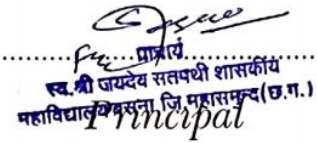 प्राचार्य
स्व. श्री जयदेव सतपथी शासकीय
महाविद्यालय बसना, जि. महासमुन्द (छ.ग.)
Principal